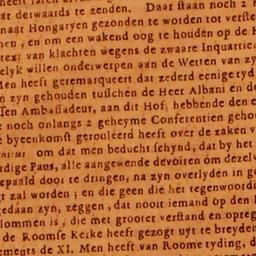 at derwaards te zenden. Daar staan noch 2
naar Hongaryen gezonden te worden tot verste
men, en om een wakend oog te houden op de H
text van klachten wegens de zwaare Inquartie
elyk willen onderwerpen aan de Wetten van zy
Men heeft geremarqueert dat zederd eenige tyd
n zyn gehouden tusschen de Heer Albani en de
sen Ambassadeur, aan dit Hof, hebbende den
e noch onlangs 2 geheyme Conferentien gehou
e byeenkomst gerouleerd heeft over de zaken v
om dat men beducht schynd, dat by het
rdige Paus, alle aangewende devoiren om dezelv
epaald door te dringen, na zyn overlyden in ge
gt zal worden; en die geen die het tegenwoordi
gedaan zyn, zeggen, dat nooit iemand op den
lommen is, die met grooter verstand en opreg
de Roomse Kerke heeft gezogt uyt te breyden
ements de XI. Men heeft van Roome tyding, d